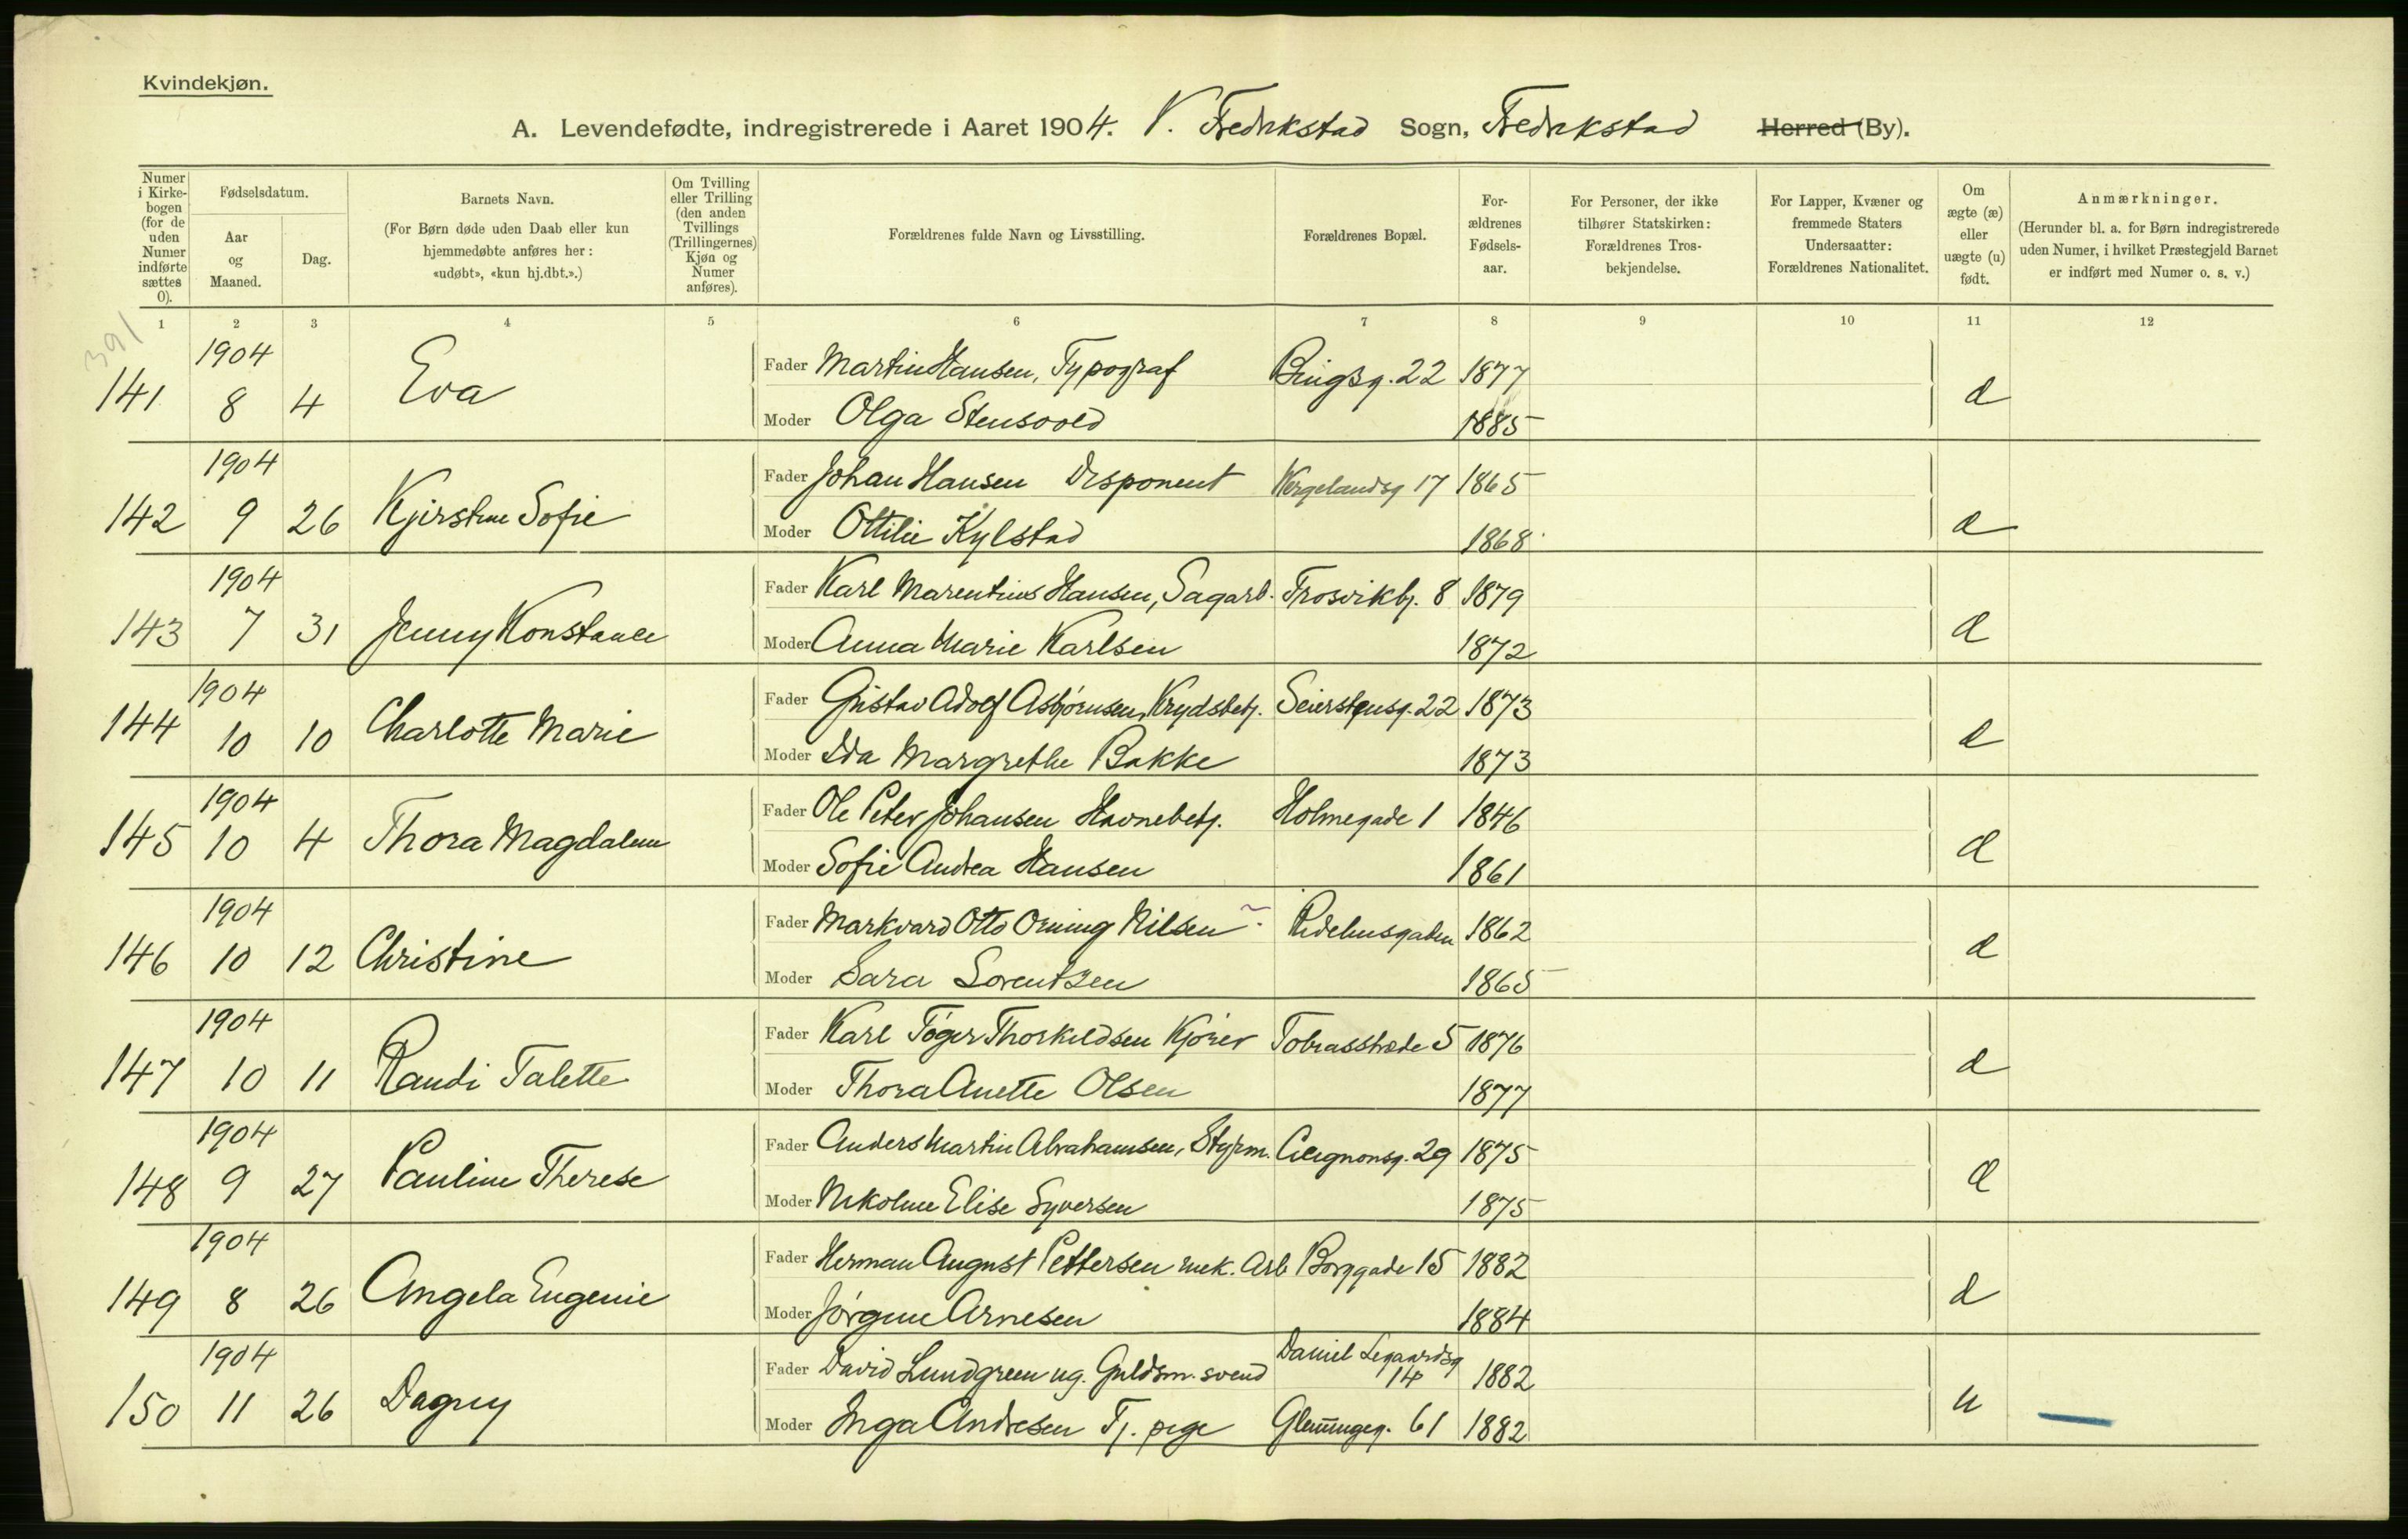 Kvindekjøn.
A. Levendefødte, indregistrerede i Aaret 1904. V. Fredrikstad Sogn, Fredrikstad Herred (By).
Numer i Kirkebogen (for de uden Numer indførte sættes 0).
Fødselsdatum.
Aar og Maaned.
Dag.
Barnets Navn.
(For Børn døde uden Daab eller kun hjemmedøbte anføres her: «udøbt», «kun hj.dbt.».)
Om Tvilling eller Trilling (den anden Tvillings (Trillingernes) Kjøn og Numer anføres).
Forældrenes fulde Navn og Livsstilling.
Forældrenes Bopæl.
Forældrenes Fødselsaar.
For Personer, der ikke tilhører Statskirken: Forældrenes Trosbekjendelse.
For Lapper, Kvæner og fremmede Staters Undersaatter: Forældrenes Nationalitet.
Om ægte (æ) eller uægte (u) født.
Anmærkninger.
(Herunder bl. a. for Børn indregistrerede uden Numer, i hvilket Præstegjeld Barnet er indført med Numer o. s. v.)
1 2 3 4 5 6 7 8 9 10 11 12
391
141 1904 8 4 Eva Fader Martin Hansen, Typograf Bingsg. 22 1877 æ
Moder Olga Stensvold 1885
142 1904 9 26 Kjirstine Sofie Fader Johan Hansen Disponent Wergelandsg 17 1865 æ
Moder Ottilie Kylstad 1868
143 1904 7 31 Jenny Konstance Fader Karl Marentius Hansen, Sagarb. Trosvikbj. 8 1879 æ
Moder Anna Marie Karlsen 1872
144 1904 10 10 Charlotte Marie Fader Gustav Adolf Asbjørnsen, Krydsbetj. Seierstensg. 22 1873 æ
Moder Ida Margrethe Bakke 1873
145 1904 10 4 Thora Magdalene Fader Ole Peter Johansen Havnebetj. Holmegade 1 1846 æ
Moder Sofie Andrea Hansen 1861
146 1904 10 12 Christine Fader Markvard Otto Orning Nilsen Ridehusgaden 1862 æ
Moder Sara Lorentzen 1865
147 1904 10 11 Randi Talette Fader Karl Tøger Thorkildsen Kjører Tobiasstræde 5 1876 æ
Moder Thora Anette Olsen 1877
148 1904 9 27 Pauline Therese Fader Anders Martin Abrahamsen, Styrm. Cicignonsg. 29 1875 æ
Moder Nikoline Elise Syversen 1875
149 1904 8 26 Angela Eugenie Fader Herman August Pettersen mek. Arb Borggade 15 1882 æ
Moder Jørgine Arnesen 1884
150 1904 11 26 Dagny Fader David Lundgreen ug. Guldsm. svend Daniel Legaardsg 14 1882 u
Moder Inga Andresen Tj. pige Glemmingeg. 61 1882